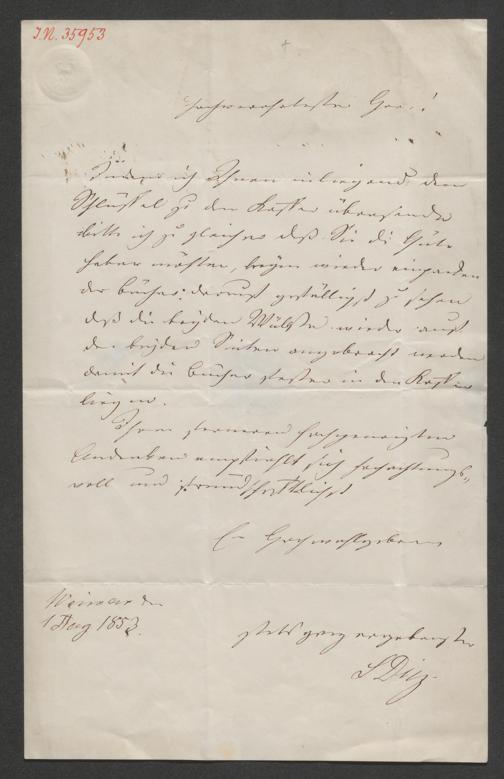 I.N. 35953
Hochverehrtester Herr!
Indem ich Ihnen inliegend den
Schlüssel zu dem Koffer übersende
bitte ich zu gleicher daß Sie die Güte
haben möchten, beym wieder einpacken
der Bücher darauf gefälligst zu sehen
daß die beyden Wülste wieder auf
den beyden Seiten angebracht werden
damit die Bücher fester in den Koffer
liegen.
Ihrem ferneren hochgeneigten
Andenken empfiehlt sich hochachtungs„
voll und freundschaftlichst
Ew Hochwohlgeboren
Weimar den
1 Aug 1853.
stets ganz ergebenster
S Dietz